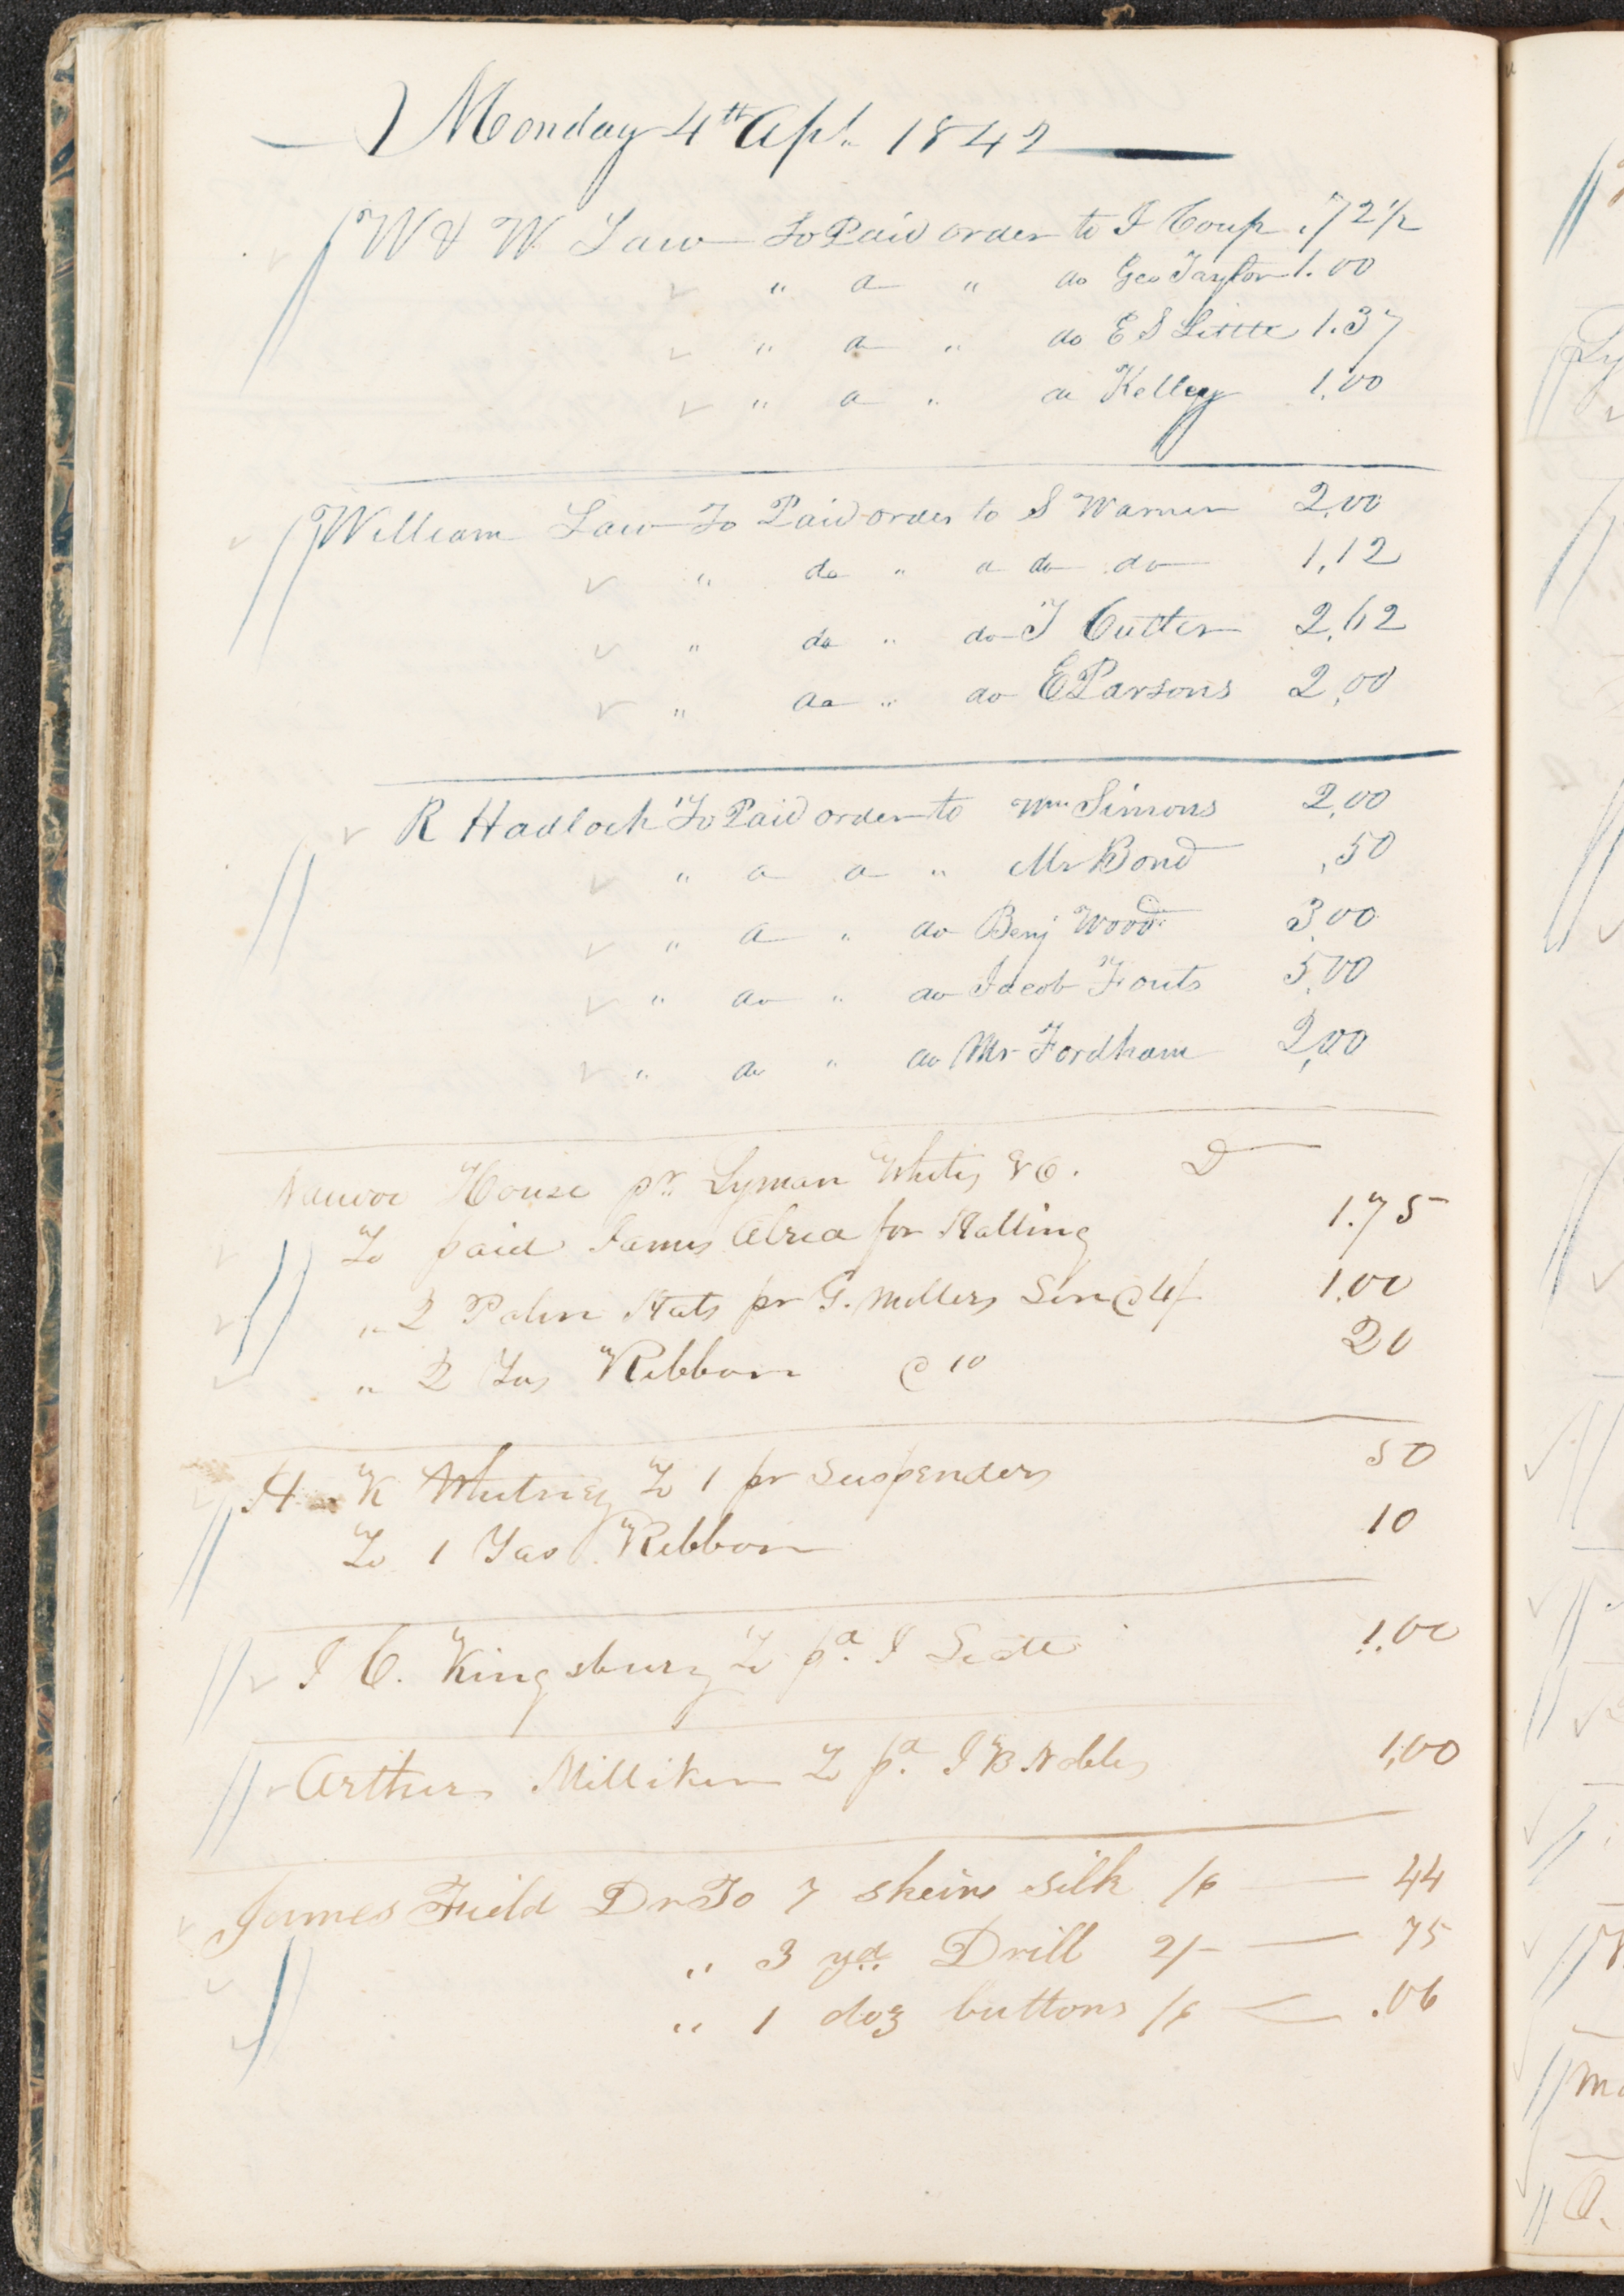 Monday 4th Apl. 1842
W & W Law To Paid order to J Coup .72 1/2
" do " do Geo Taylor 1.00
" do " do E S Little 1.37
" do " do Kelley 1.00
William Law To Paid order to S Warner 2,00
" do " do do 1,12
" do " do J Cutler 2,62
" do " do E Parsons 2,00
R Hadlock To Paid order to Wm Simons 2,00
" do " Mr Bond ,50
" do " do Benj Wood 3,00
" do " do Jacob Fouts 5,00
" do " do Mr Fordham 2,00
Nauvoo House pr Lyman White, & C. D
To paid James for Halling 1.75
" 2 Palm Hats pr G. Millers Son @ 4/ 1.00
" 2 Yds Ribbon @ 10 20
H K Whitney To 1 pr Suspenders 50
To 1 Yad Ribbon 10
J C. Kingsbury To pd. J Scott 1.00
Arthur Milliken To pd. J B Nobles 1,00
James Field Dr To 7 skeins silk /6 44
" 3 yds Drill 2/- 75
" 1 doz buttons /6 .06